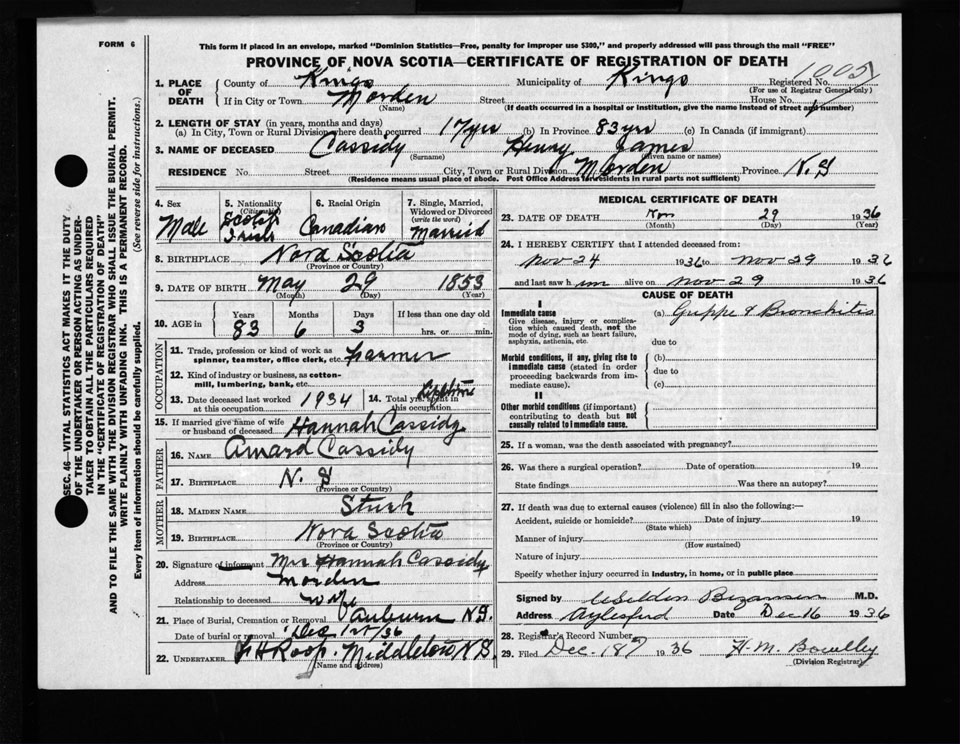 FORM 6
This form if placed in an envelope, marked "Dominion Statistics—Free, penalty for improper use $300," and properly addressed will pass through the mail "FREE"
PROVINCE OF NOVA SCOTIA—CERTIFICATE OF REGISTRATION OF DEATH
SEC. 46—VITAL STATISTICS ACT MAKES IT THE DUTY
OF THE UNDERTAKER OR PERSON ACTING AS UNDER-
TAKER TO OBTAIN ALL THE PARTICULARS REQUIRED
IN THE "CERTIFICATE OF REGISTRATION OF DEATH"
AND TO FILE THE SAME WITH THE DIVISION REGISTRAR, WHO SHALL ISSUE THE BURIAL PERMIT.
WRITE PLAINLY WITH UNFADING INK. THIS IS A PERMANENT RECORD.
Every item of information should be carefully supplied. (See reverse side for instructions.)
1. PLACE OF DEATH County of Kings Municipality of Kings Registered No. 1005
(For use of Registrar General only)
If in City or Town Morden Street House No.
(Name) (If death occurred in a hospital or institution, give the name instead of street and number)
2. LENGTH OF STAY (in years, months and days)
(a) In City, Town or Rural Division where death occurred 17 yrs (b) In Province 83 yrs (c) In Canada (if immigrant)
3. NAME OF DECEASED Cassidy Henry James
(Surname) (Given name or names)
RESIDENCE No. Street City, Town or Rural Division Morden Province N.S
(Residence means usual place of abode. Post Office Address for residents in rural parts not sufficient)
4. Sex Male
5. Nationality (Citizenship) Scotch Irish
6. Racial Origin Canadian
7. Single, Married, Widowed or Divorced (write the word) Married
8. BIRTHPLACE Nova Scotia
(Province or Country)
9. DATE OF BIRTH May 29 1853
(Month) (Day) (Year)
10. AGE in Years 83 Months 6 Days 3 If less than one day old hrs. or min.
OCCUPATION
11. Trade, profession or kind of work as spinner, teamster, office clerk, etc. Farmer
12. Kind of industry or business, as cotton-mill, lumbering, bank, etc.
13. Date deceased last worked at this occupation 1934
14. Total yrs. spent in this occupation Lifetime
15. If married give name of wife or husband of deceased Hannah Cassidy
FATHER
16. NAME Amard Cassidy
17. BIRTHPLACE N. S
(Province or Country)
MOTHER
18. MAIDEN NAME
19. BIRTHPLACE Nova Scotia
(Province or Country)
20. Signature of informant Mrs Hannah Cassidy
Address Morden
Relationship to deceased wife
21. Place of Burial, Cremation or Removal Auburn N.S.
Date of burial or removal Dec 1st/36
22. UNDERTAKER Roop. Middleton N S
(Name and address)
MEDICAL CERTIFICATE OF DEATH
23. DATE OF DEATH Nov 29 1936
(Month) (Day) (Year)
24. I HEREBY CERTIFY that I attended deceased from:
Nov 24 1936 to Nov 29 1936
and last saw him alive on Nov 29 1936
CAUSE OF DEATH
I
Immediate cause
Give disease, injury or complication which caused death, not the mode of dying, such as heart failure, asphyxia, asthenia, etc.
(a) Grippe & Bronchitis
due to
Morbid conditions, if any, giving rise to immediate cause (stated in order proceeding backwards from immediate cause).
(b)
due to
(c)
II
Other morbid conditions (if important) contributing to death but not causally related to immediate cause.
25. If a woman, was the death associated with pregnancy?
26. Was there a surgical operation? Date of operation 19
State findings Was there an autopsy?
27. If death was due to external causes (violence) fill in also the following:—
Accident, suicide or homicide? Date of injury 19
(State which)
Manner of injury
(How sustained)
Nature of injury
Specify whether injury occurred in industry, in home, or in public place
Signed by M.D.
Address Aylesford Date Dec 16 1936
28. Registrar's Record Number
29. Filed Dec. 18 1936 H. M. Bowlby
(Division Registrar)